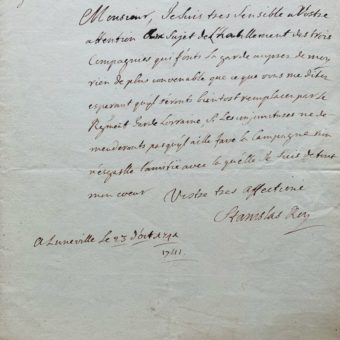 Monsieur, Je suis tres Sensible a Vostre
attention au Sujet de l'habillement des trois
Compagnies qui fonts la garde aupres de moy
rien de plus convenable que ce que vous me dites
esperant quyl seronts bientost remplacez par le
Regiment garde Lorraine si les conjonctures ne de
menderonts pas quyl aille faire la Campagne
l'amitie avec la quelle Je suis de tout
mon coeur Vostre tres affectione
Stanislas Roy
A Luneville Le 23
1741.